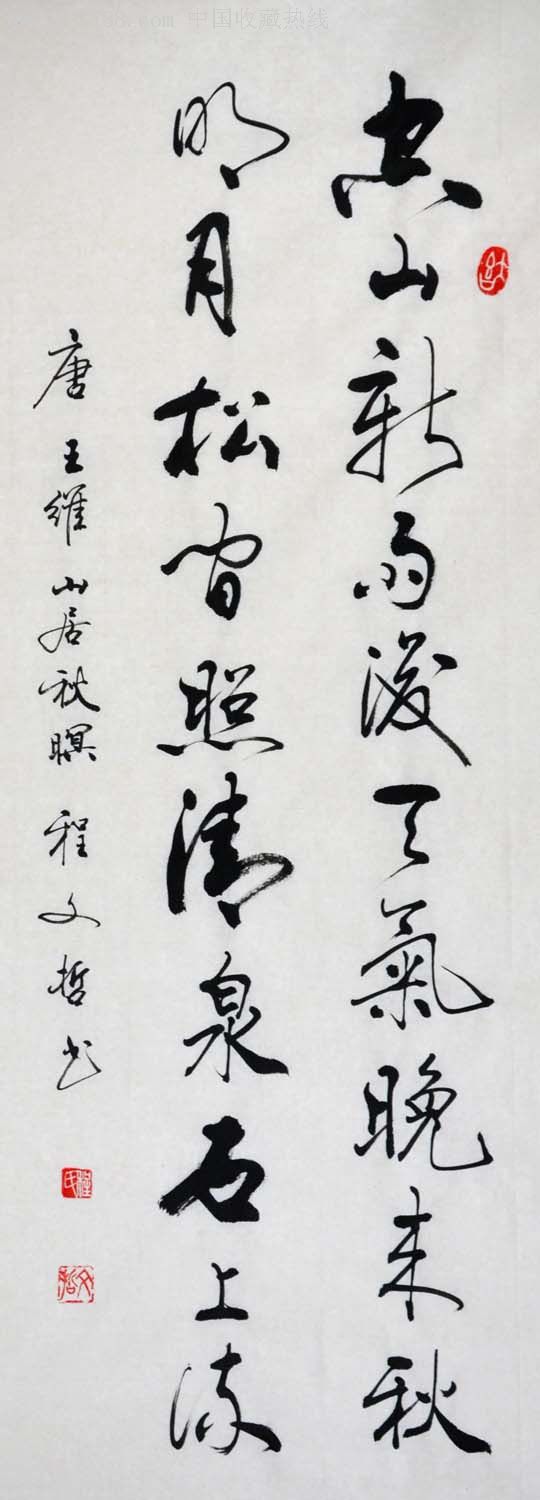 空山新雨後天氣晚来秋
明月松間照清泉石上流
唐王維山居秋暝 程文哲书
88.com 中国收藏热线